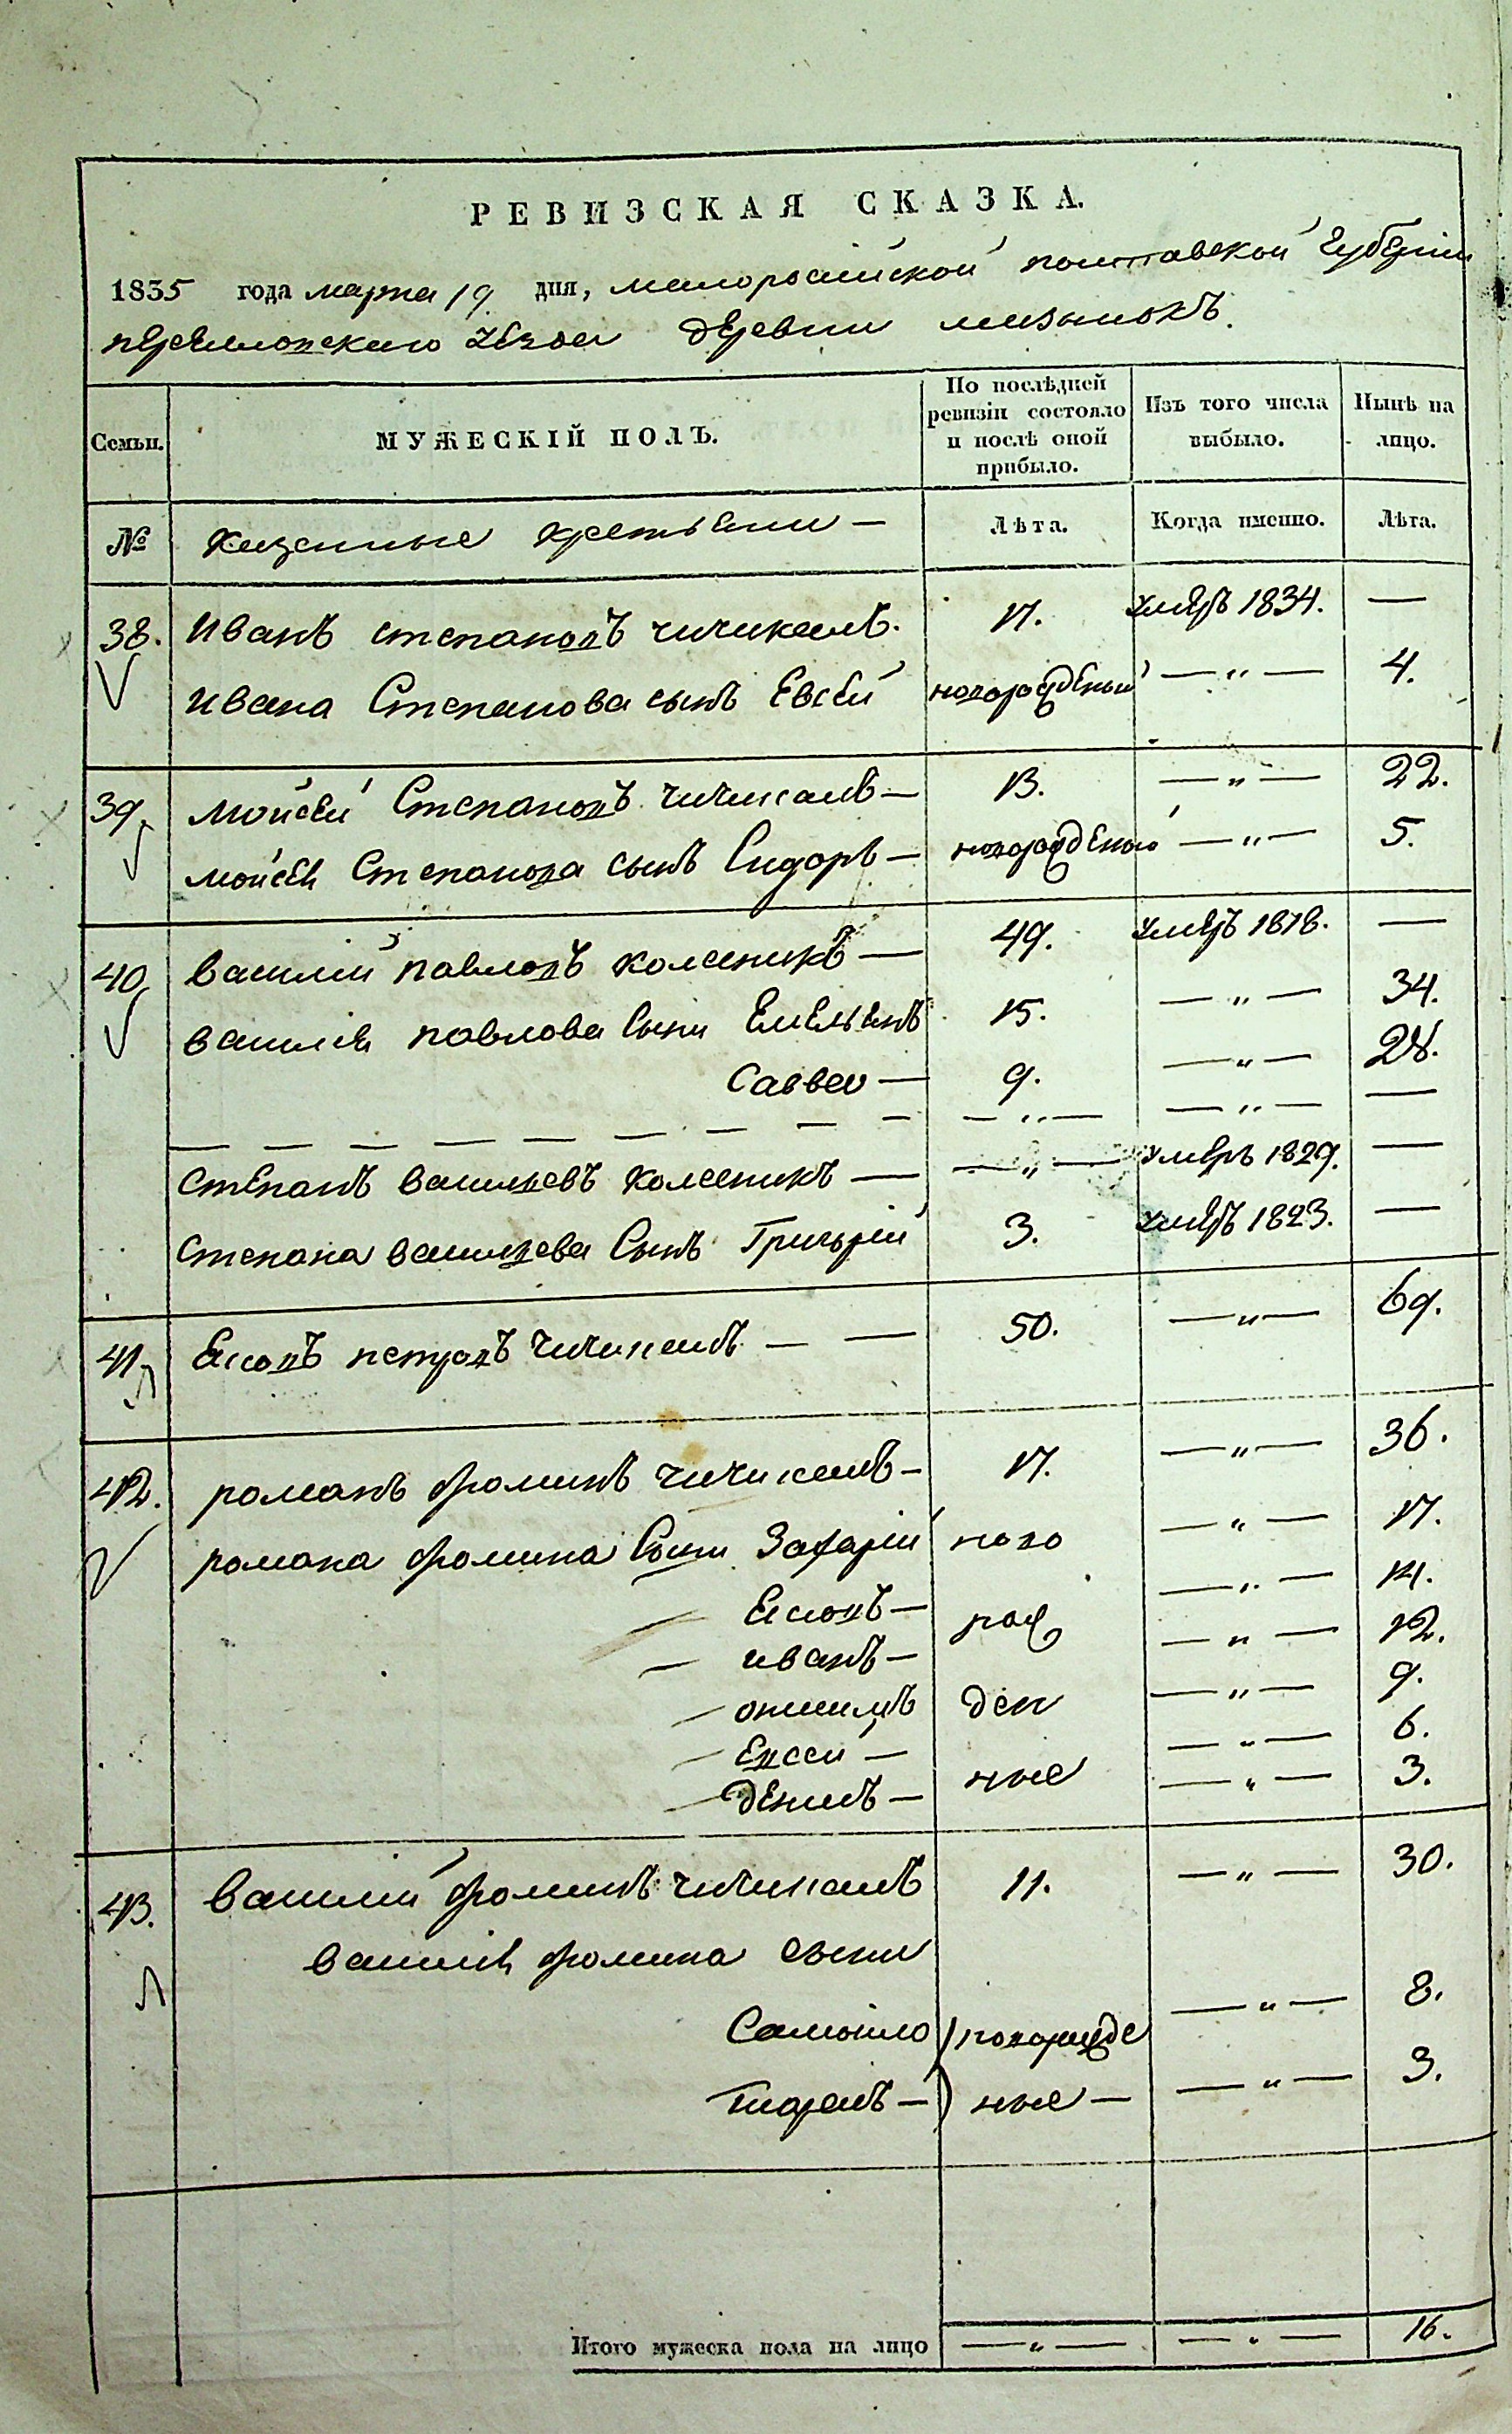 РЕВИЗСКАЯ СКАЗКА.
1835 года марта 19 дня, малороссійской полтавской губерніи
деревни
Семьи. МУЖЕСКІЙ ПОЛЪ. По послѣдней ревизіи состояло и послѣ оной прибыло. Изъ того числа выбыло. Нынѣ на лицо.
№ казенные Лѣта. Когда именно. Лѣта.
38. Иванъ степановъ чичикалъ. 17. умеръ 1834. —
ивана Степанова сынъ Евсей новорожденый — „ — 4.
39. Мойсей Степановъ чичикалъ — 13. — „ — 22.
мойсея Степанова сынъ Сидоръ — новорожденой — „ — 5.
40. василій павловъ колесникъ — 49. умеръ 1818. —
василія павлова сыны Емельянъ 15. — „ — 34.
Савва — 9. — „ — 28.
— — — — — — — — — — „ — — „ — —
степанъ васильевъ колесникъ — — „ — умеръ 1829. —
степана васильева Сынъ Григорій 3. умеръ 1823. —
41. петровъ чичикалъ — — 50. — „ — 69.
42. романъ фоминъ чичикалъ — 17. — „ — 36.
романа фомина Сыны Захарій ново — „ — 17.
— — „ — 14.
— иванъ — рож — „ — 12.
— онисимъ ден — „ — 9.
— Евсей — — „ — 6.
— ные — „ — 3.
43. василій фоминъ чичикалъ 11. — „ — 30.
василія фомина сыны
Самойло новорожде — „ — 8.
Тарасъ — ные — — „ — 3.
Итого мужеска пола на лицо — „ — — „ — 16.